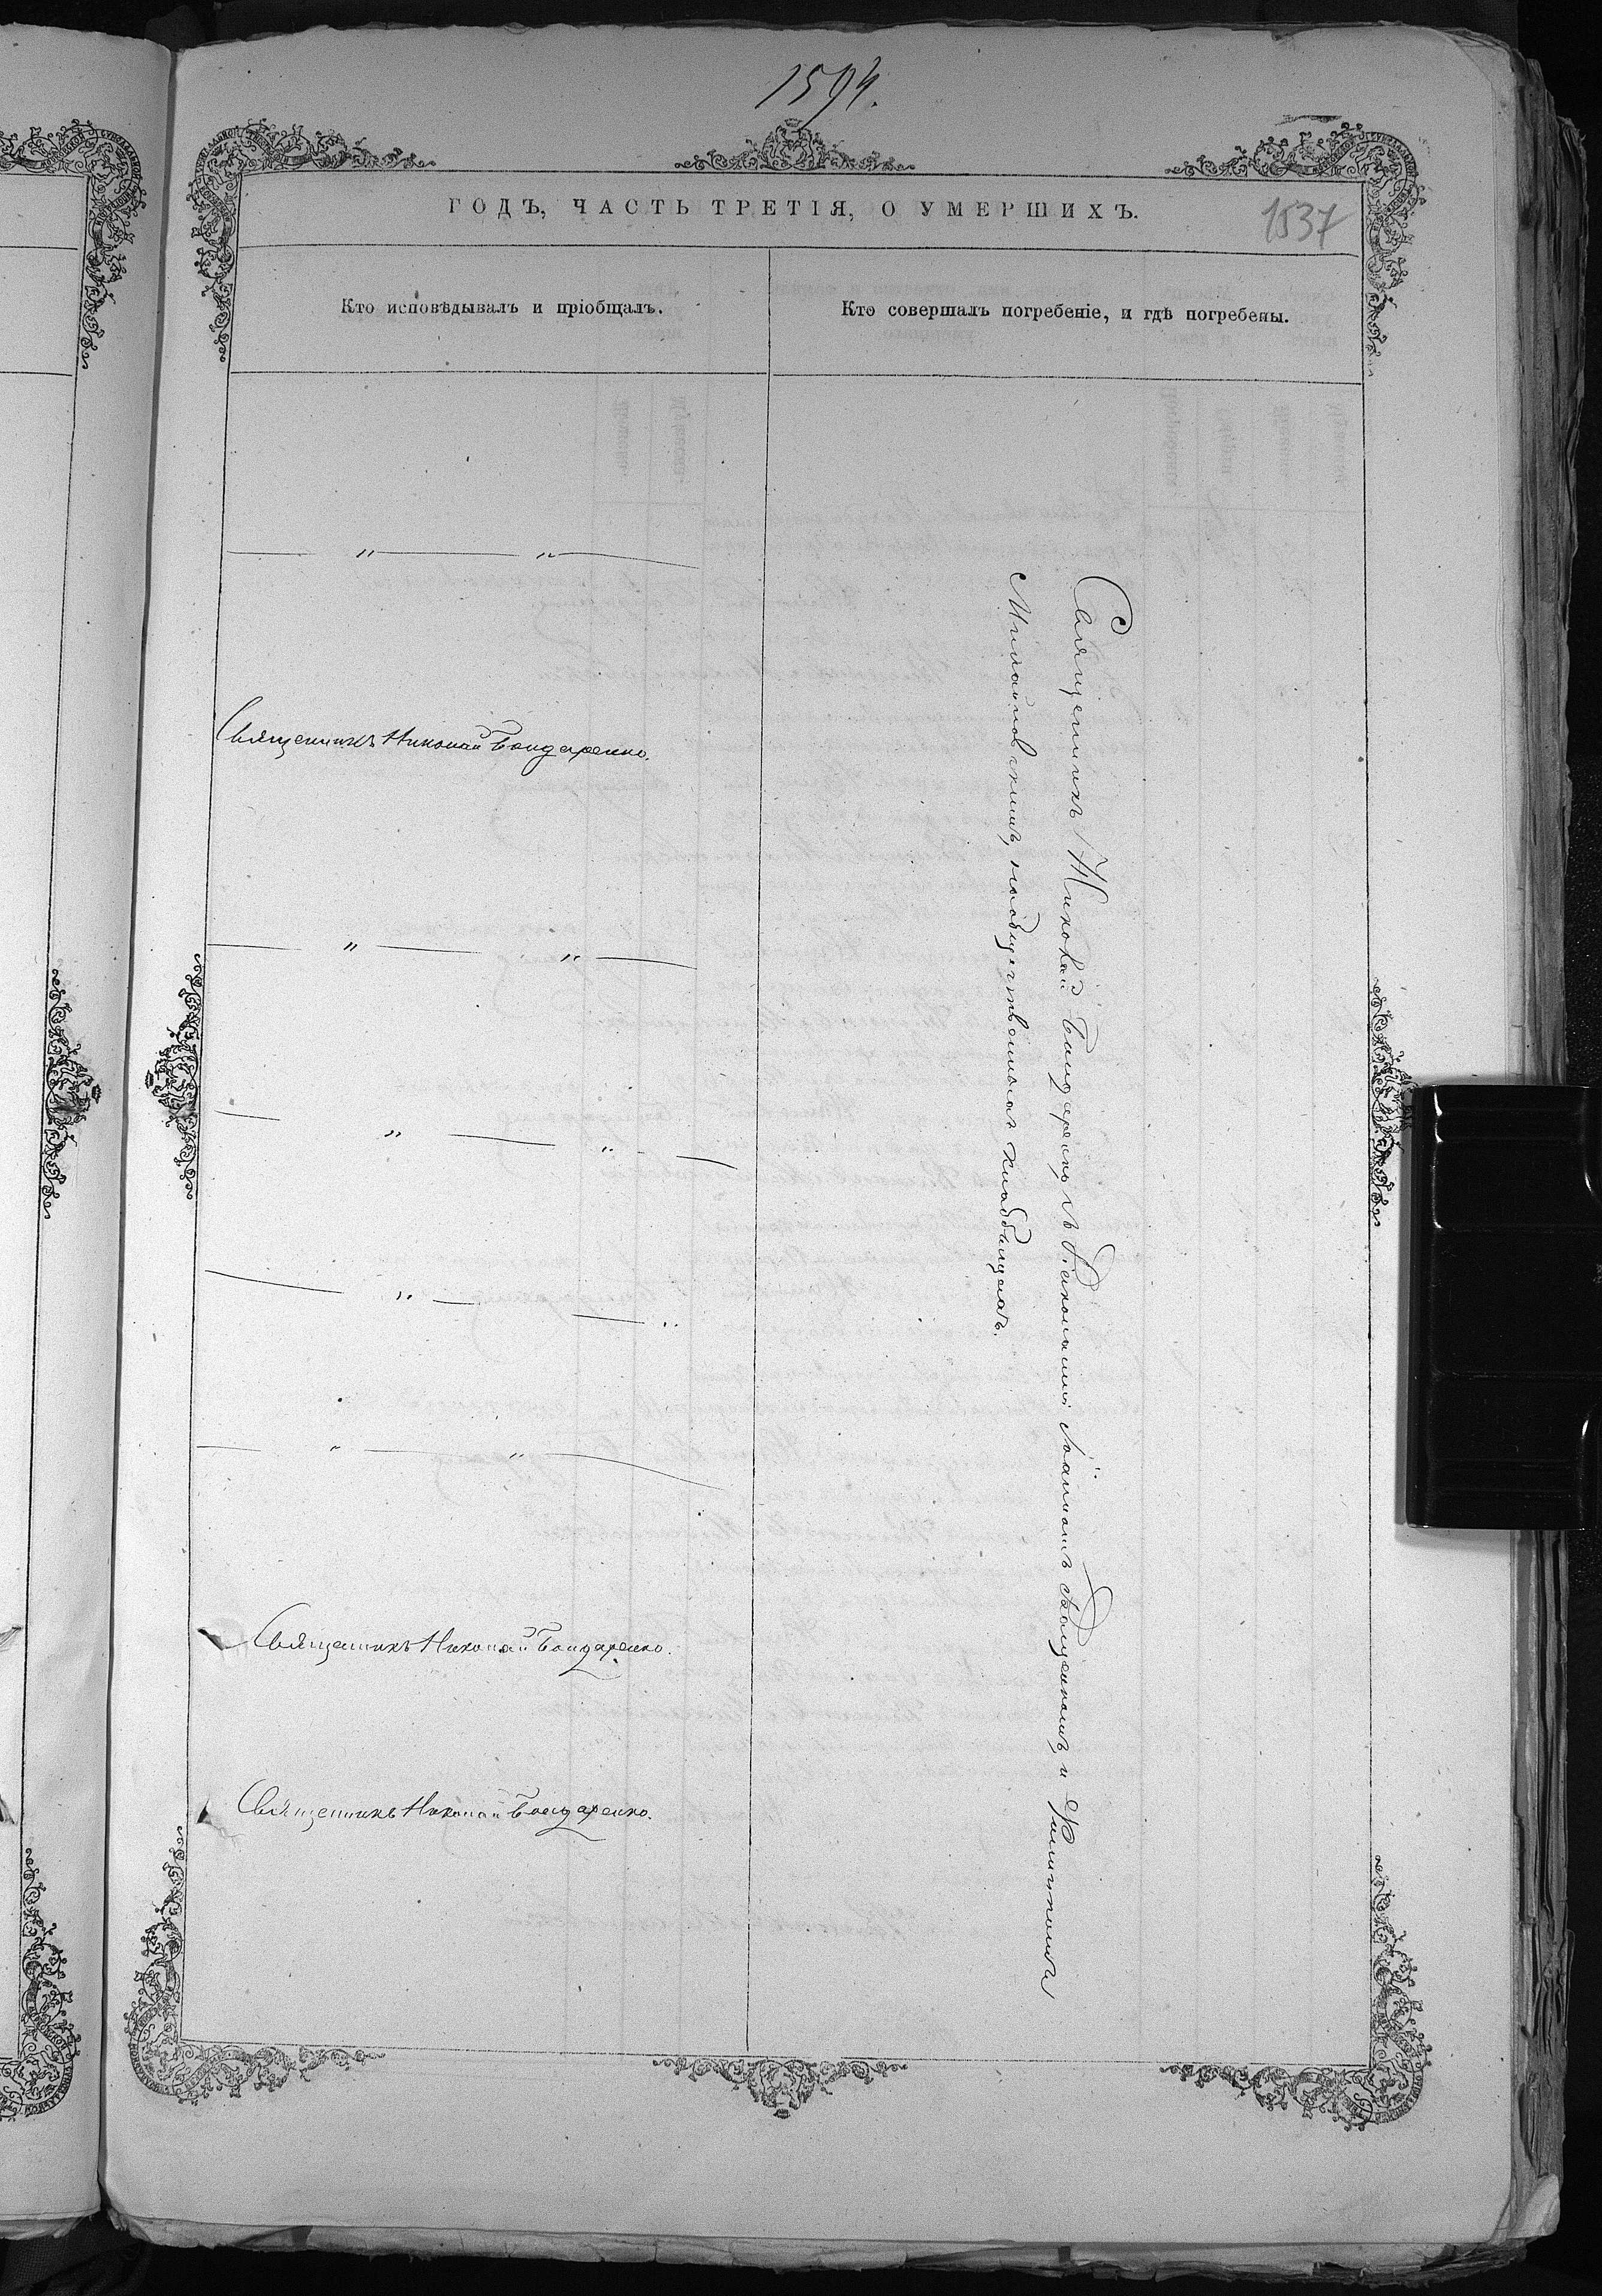 1594.
ГОДЪ, ЧАСТЬ ТРЕТІЯ, О УМЕРШИХЪ.
1537
Кто исповѣдывалъ и пріобщалъ.
Кто совершалъ погребеніе, и гдѣ погребены.
— " — " —
Священникъ Николай Бондаренко.
— " — " —
— " — " —
— " — — "
— " — " —
Священникъ Николай Бондаренко.
Священникъ Николай Бондаренко.
Священникъ Николай Бондаренко съ Іоанномъ и
на общественномъ кладбищѣ.